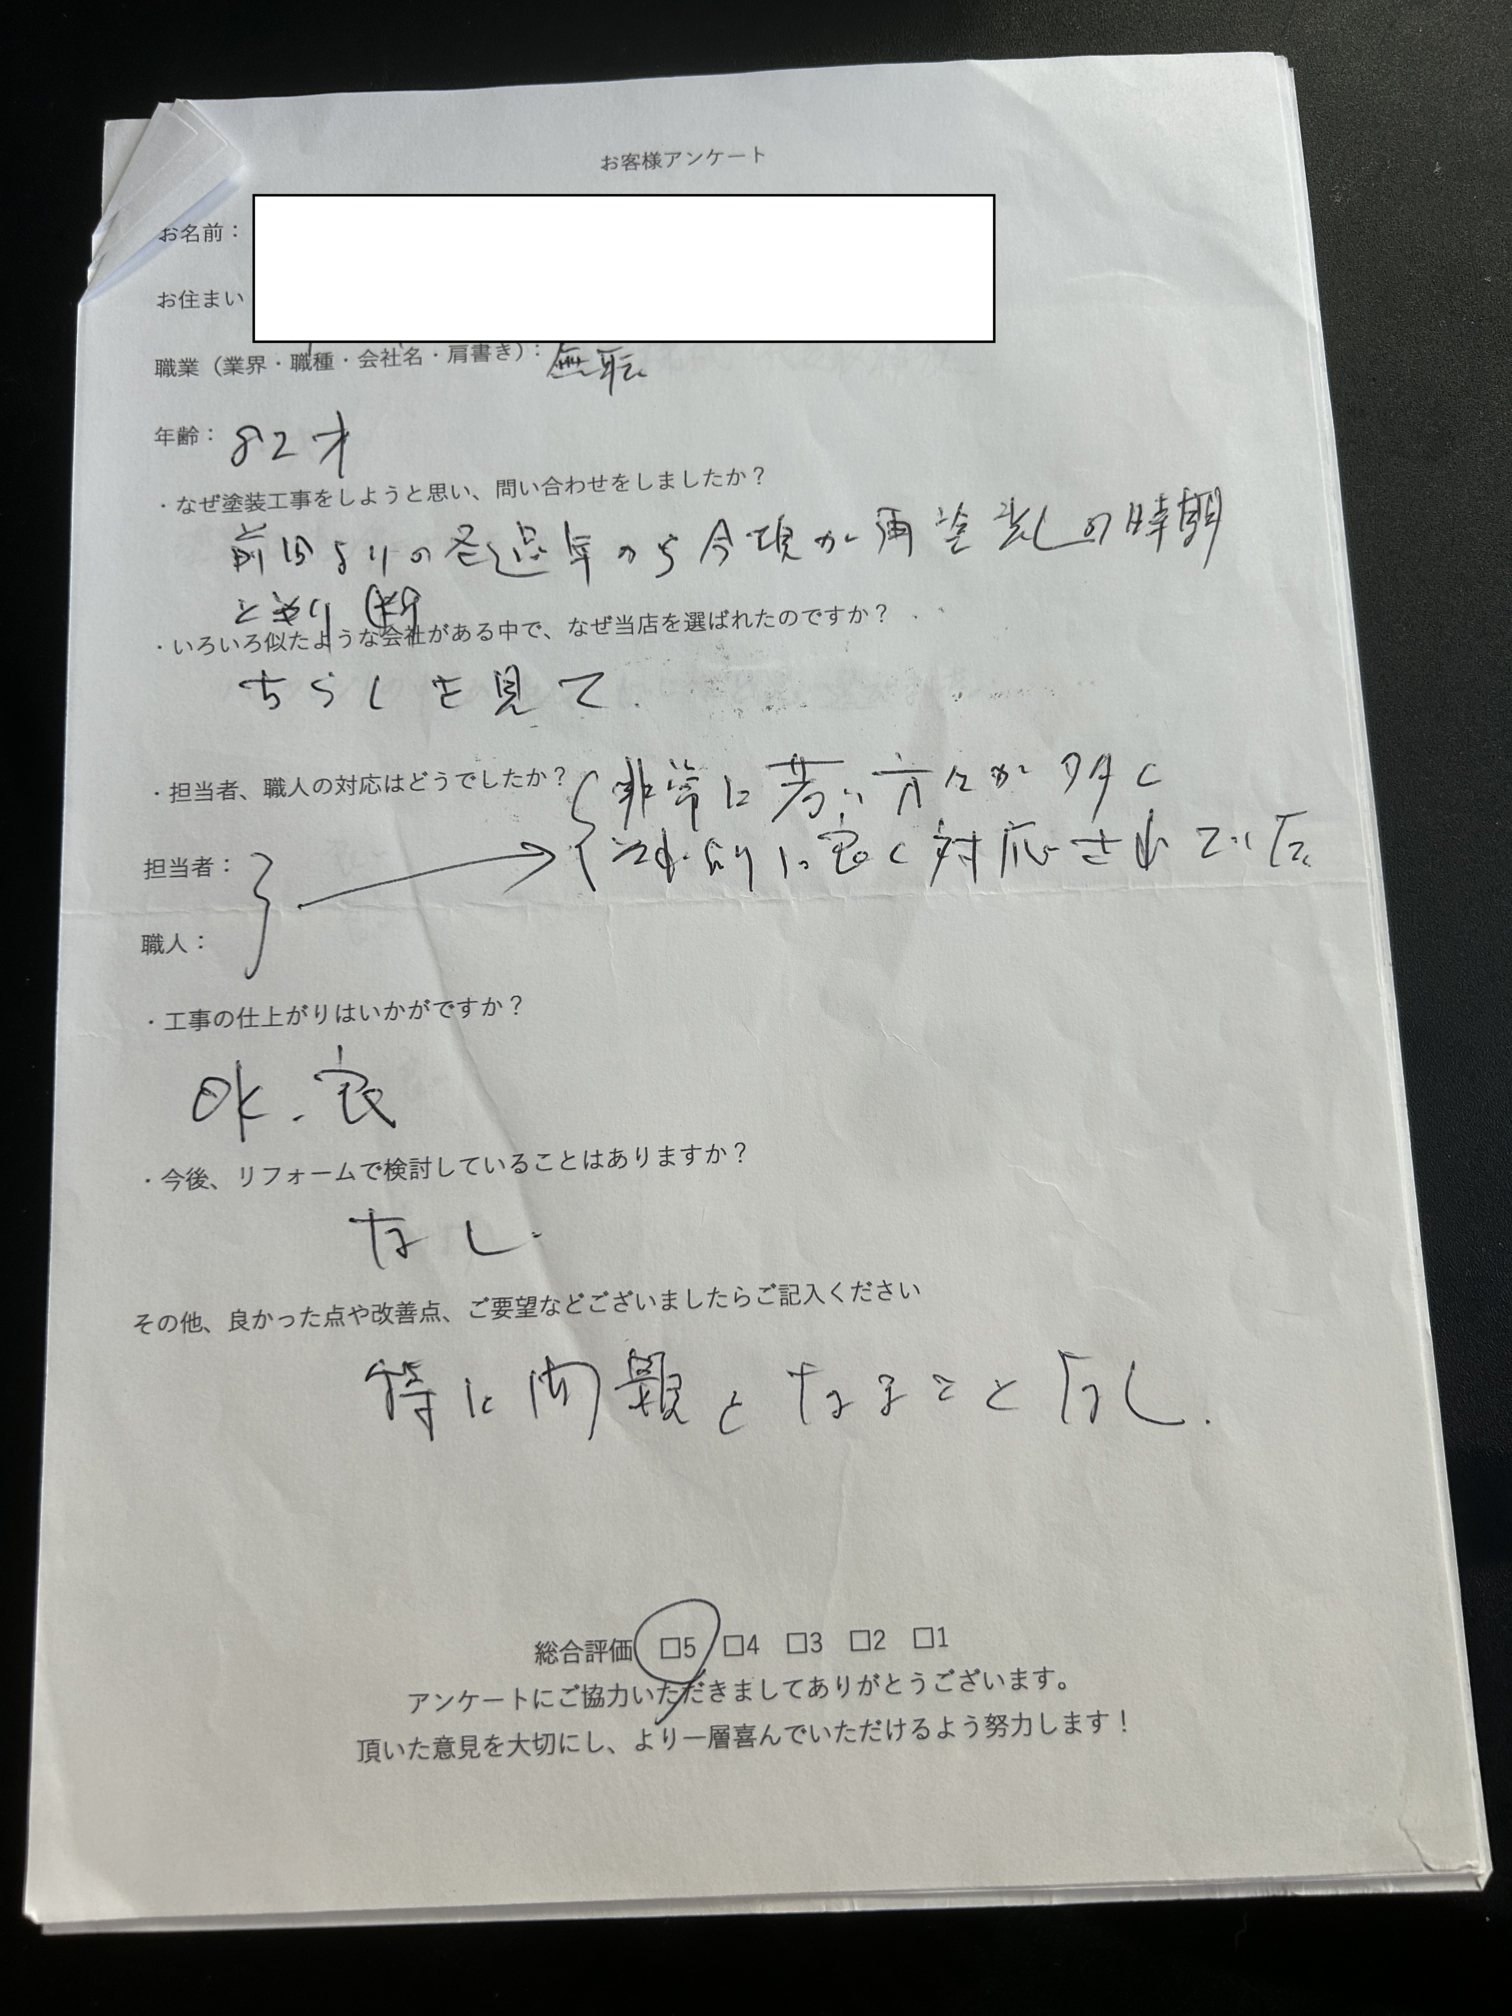 お客様アンケート
お名前：
お住まい
職業（業界・職種・会社名・肩書き）：無職
年齢： 82才
・なぜ塗装工事をしようと思い、問い合わせをしましたか？
前回よりの経過年から今頃が再塗装の時期
と
・いろいろ似たような会社がある中で、なぜ当店を選ばれたのですか？
ちらしを見て.
・担当者、職人の対応はどうでしたか？
非常に若い方々が多く
に良く対応されていた
担当者：
職人：
・工事の仕上がりはいかがですか？
OK. 良
・今後、リフォームで検討していることはありますか？
なし.
その他、良かった点や改善点、ご要望などございましたらご記入ください
特に問題となることなし.
総合評価 □5 □4 □3 □2 □1
アンケートにご協力いただきましてありがとうございます。
頂いた意見を大切にし、より一層喜んでいただけるよう努力します！